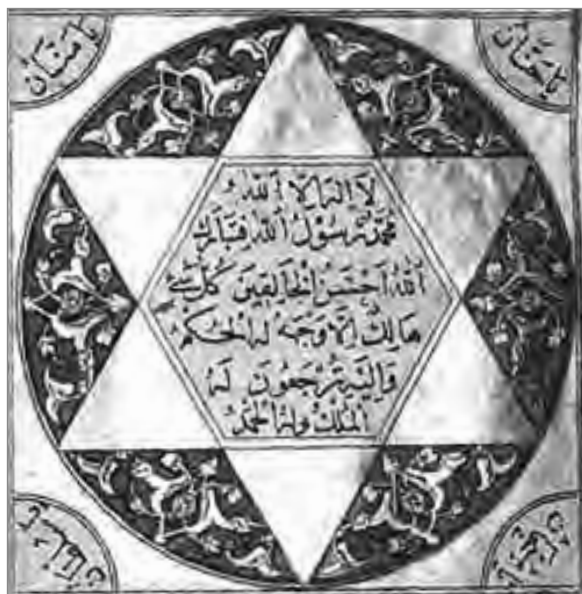 يا حنان
يا منان
لا اله الا الله
محمد رسول الله فتبارك
الله احسن الخالقين كل شئ
هالك الا وجهه له الحكم
واليه ترجعون له
الملك وله الحمد